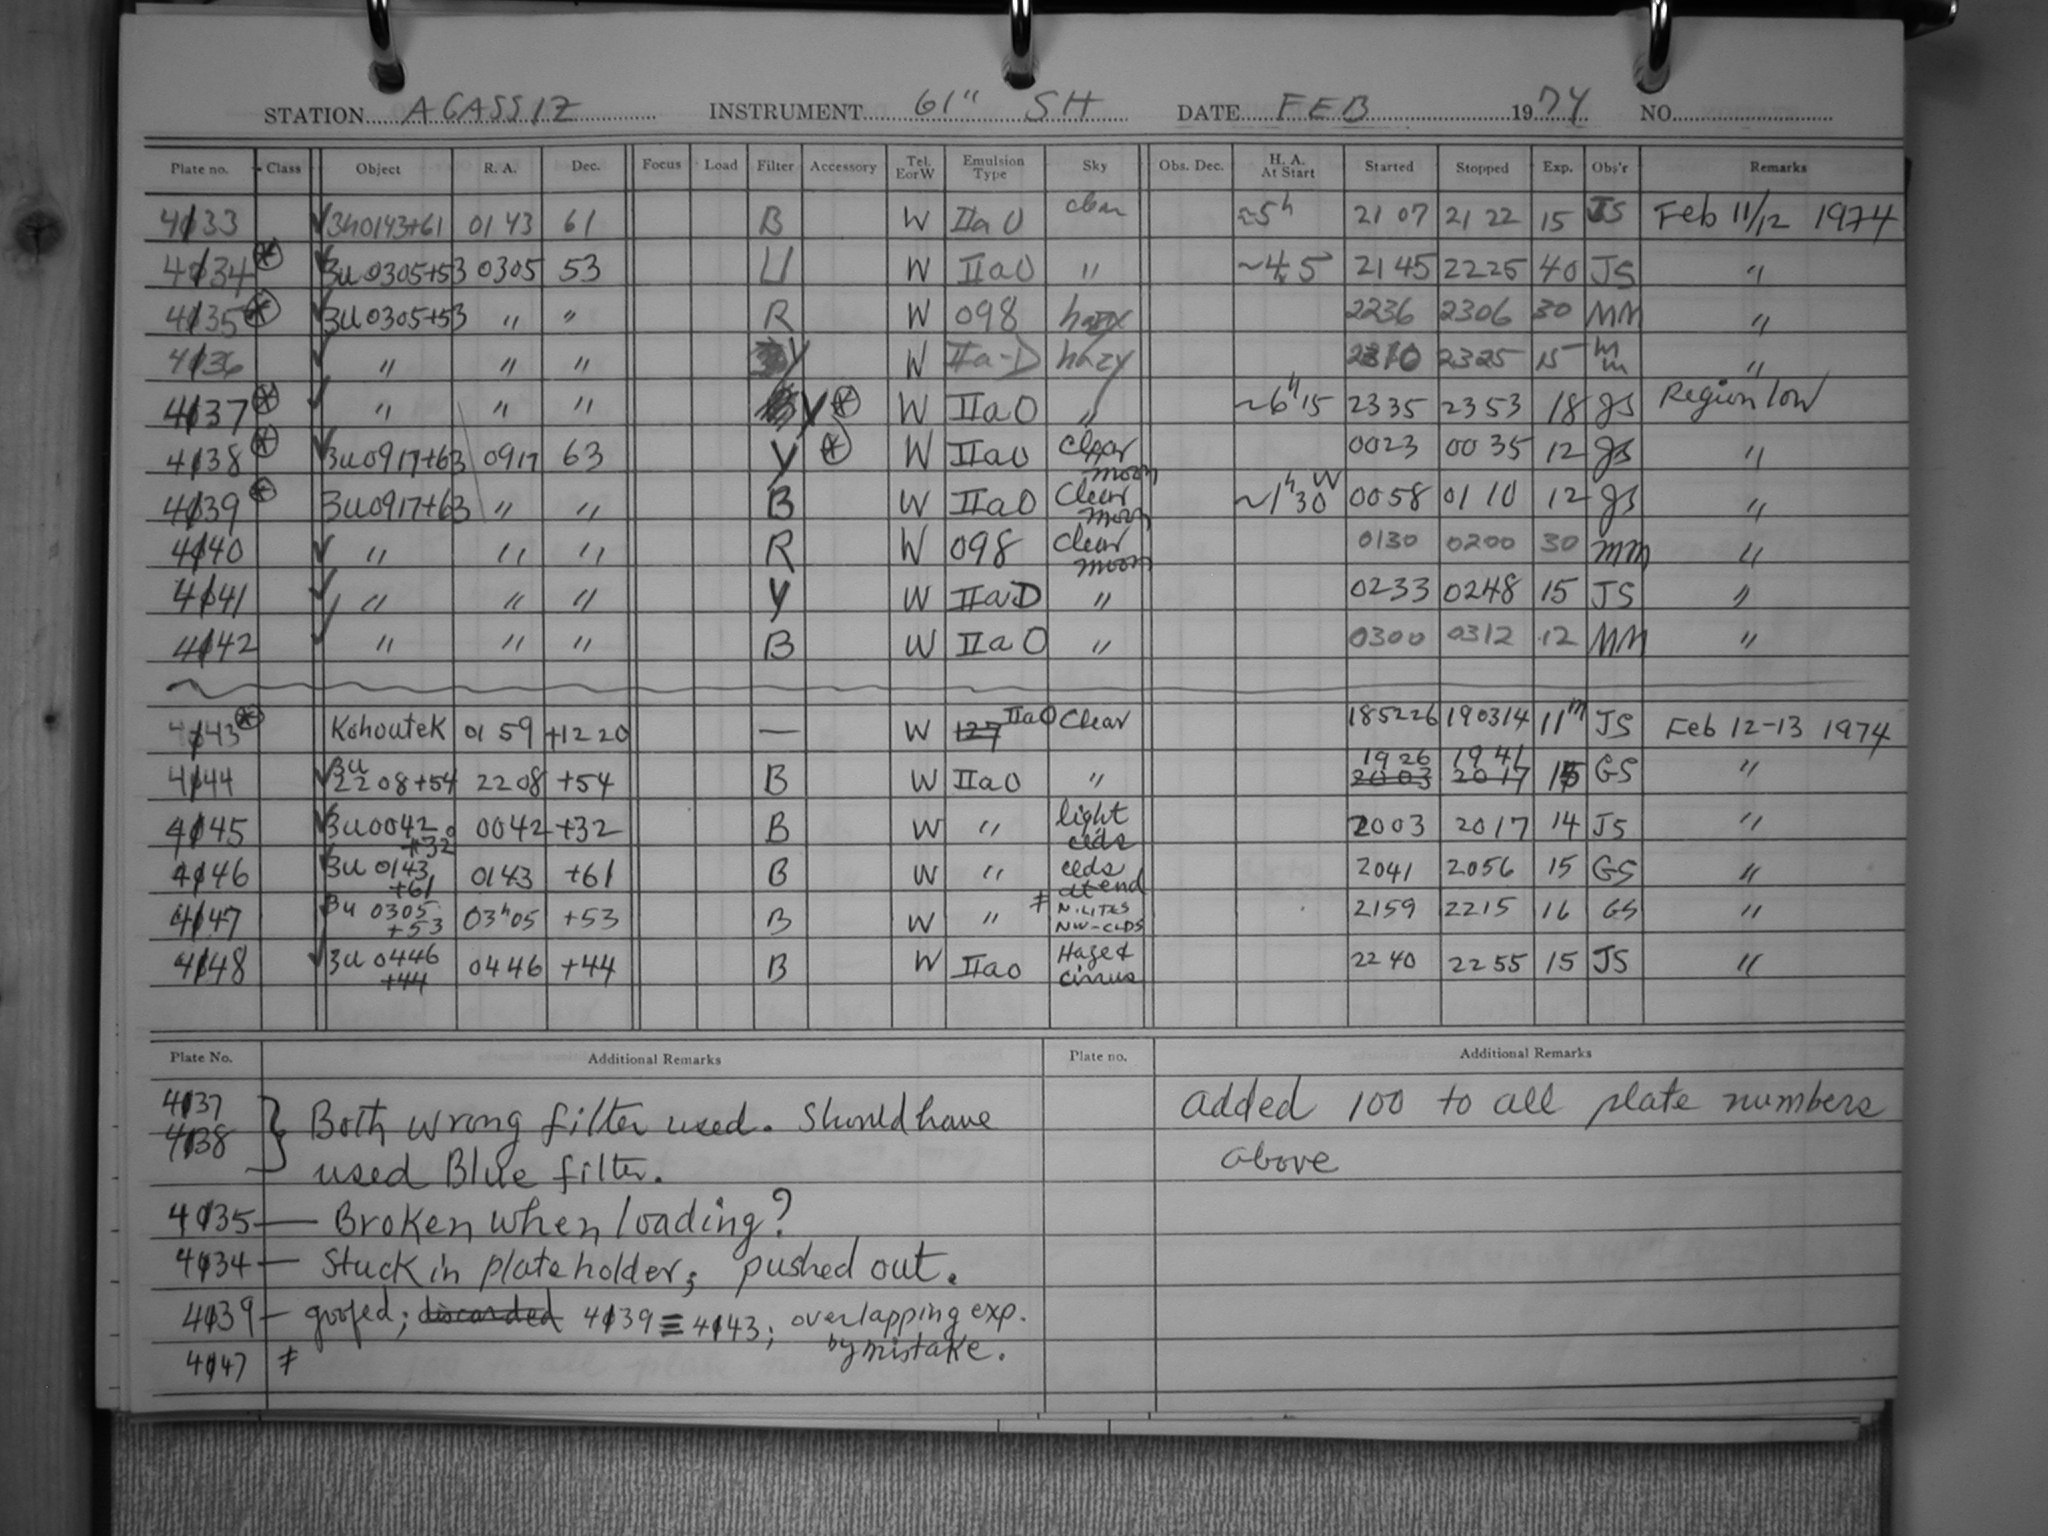 STATION AGASSIZ INSTRUMENT 61" SH DATE FEB 1974 NO.
Plate no. Class Object R. A. Dec. Focus Load Filter Accessory Tel. EorW Emulsion Type Sky Obs. Dec. H. A. At Start Started Stopped Exp. Obs'r Remarks
4133 3u0143+61 0143 61 B W IIaO clear ~5h 2107 2122 15 JS Feb 11/12 1974
4134 * 3u0305+53 0305 53 U W IIaO " ~4.5 2145 2225 40 JS "
4135 * 3u0305+53 " " R W 098 hazy 2236 2306 30 MM "
4136 " " " Y W IIa-D hazy 2310 2325 15 mm "
4137 * " " " Y * W IIaO " ~6h15 2335 2353 18 JS Region low
4138 * 3u0917+63 0917 63 Y * W IIaO clear moon 0023 0035 12 JS "
4139 * 3u0917+63 " " B W IIaO Clear moon ~1h30W 0058 0110 12 JS "
4140 " " " R W 098 clear moon 0130 0200 30 MM "
4141 " " " Y W IIaD " 0233 0248 15 JS "
4142 " " " B W IIaO " 0300 0312 12 MM "
4143 * Kohoutek 01 59 +12 20 — W 127 IIaO Clear 185226 190314 11m JS Feb 12-13 1974
4144 3u 2208+54 2208 +54 B W IIaO " 1926 2003 1941 2017 15 GS "
4145 3u0042 +32 0042 +32 B W " light clds 2003 2017 14 JS "
4146 3u 0143 +61 0143 +61 B W " clds at end 2041 2056 15 GS "
4147 3u 0305 +53 03h05 +53 B W " ‡ N.LITES NW-CLDS 2159 2215 16 GS "
4148 3u 0446 +44 0446 +44 B W IIaO Haze & cirrus 2240 2255 15 JS "
Plate No. Additional Remarks Plate no. Additional Remarks
4137
4138 } Both wrong filter used. Should have
used Blue filter.
4135 — Broken when loading?
4134 — Stuck in plateholder; pushed out.
4139 — goofed; discarded 4139 ≡ 4143; overlapping exp.
by mistake.
4147 ‡
added 100 to all plate numbers
above